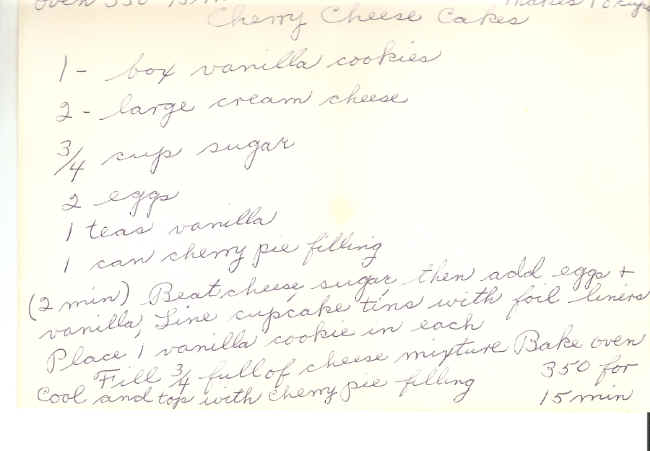 oven 350 15 m
makes 18 cups
Cherry Cheese Cakes
1 - box vanilla cookies
2 - large cream cheese
3/4 cup sugar
2 eggs
1 teas vanilla
1 can cherry pie filling
(2 min) Beat cheese, sugar then add eggs +
vanilla, Line cupcake tins with foil liners
Place 1 vanilla cookie in each
Fill 3/4 full of cheese mixture Bake oven
350 for
Cool and top with cherry pie filling
15 min